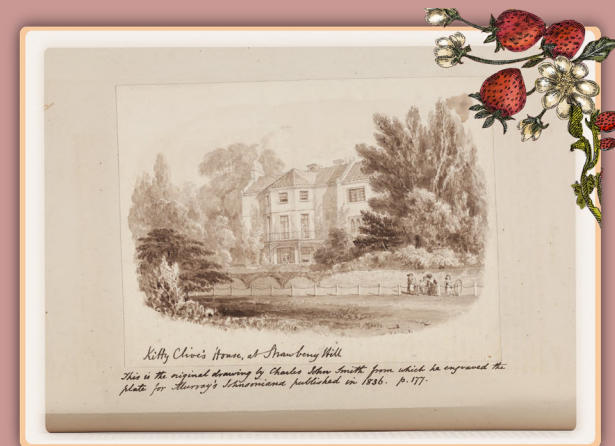 Kitty Clive's House, at Strawberry Hill
This is the original drawing by Charles John Smith from which he engraved the
plate for Murray's Johnsoniana published in 1836. p. 177.